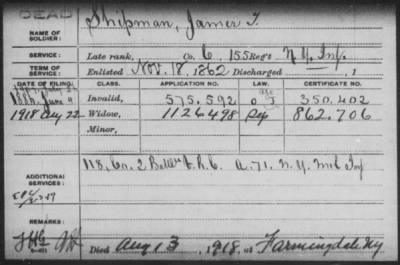 DEAD
NAME OF SOLDIER: Shipman, James T.
SERVICE: Late rank, Co. C, 155 Reg't N.Y. Inf.
TERM OF SERVICE: Enlisted Nov. 18, 1862 Discharged , 1
DATE OF FILING. CLASS. APPLICATION NO. LAW. CERTIFICATE NO.
June 4 Invalid, 575.592 350.402
1918 Aug 22 Widow, 1126.498 862.706
Minor,
ADDITIONAL SERVICES:
118, Co. 2 Batt'n V.R.C. A. 71. N.Y. Inf
REMARKS:
Died Aug 13, 1918, at Farmingdale Ny